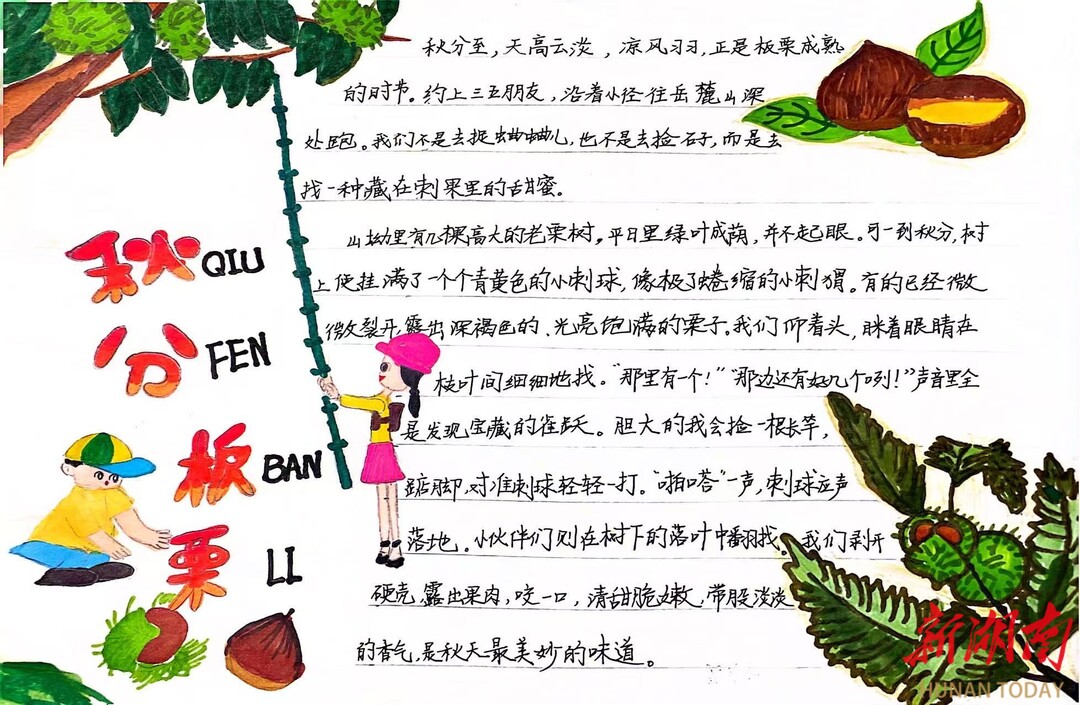 秋分至，天高云淡，凉风习习，正是板栗成熟
的时节。约上三五朋友，沿着小径往岳麓山深
处跑。我们不是去捉蛐蛐儿，也不是去捡石子，而是去
找一种藏在刺果里的甜蜜。
山坳里有几棵高大的老栗树。平日里绿叶成荫，并不起眼。可一到秋分，树
上便挂满了一个个青黄色的小刺球，像极了蜷缩的小刺猬。有的已经微
微裂开，露出深褐色的、光亮饱满的栗子。我们仰着头，眯着眼睛在
枝叶间细细地找。“那里有一个！”“那边还有好几个咧！”声音里全
是发现宝藏的雀跃。胆大的我会捡一根长竿，
踮脚，对准刺球轻轻一打。“啪嗒”一声，刺球应声
落地。小伙伴们则在树下的落叶中翻找。我们剥开
硬壳，露出果肉，咬一口，清甜脆嫩，带股淡淡
的香气，是秋天最美妙的味道。
秋 QIU
分 FEN
板 BAN
栗 LI
新湖南
HUNAN TODAY